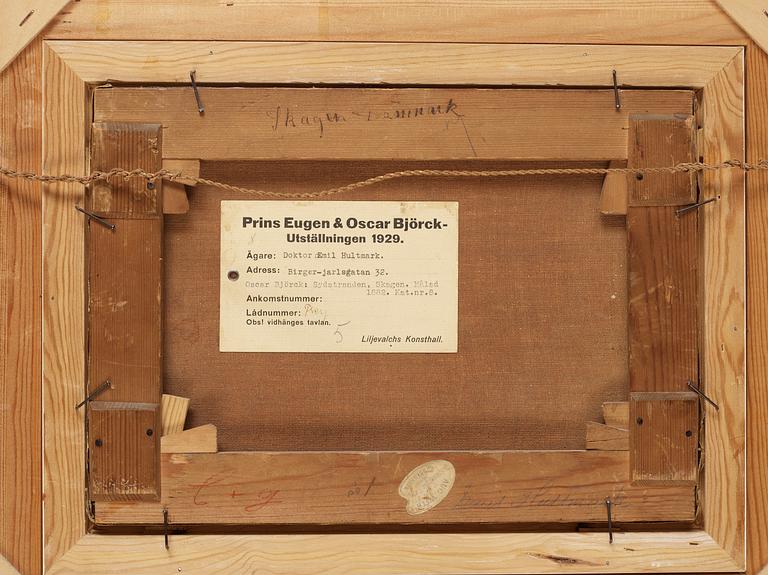 Skagen - Danmark
Prins Eugen & Oscar Björck-
Utställningen 1929.
Ägare: Doktor Emil Hultmark.
Adress: Birger-jarlsgatan 32.
Oscar Björck: Sydstranden, Skagen. Målad
1882. Kat.nr.8.
Ankomstnummer:
Lådnummer:
Obs! vidhänges tavlan.
5
Liljevalchs Konsthall.